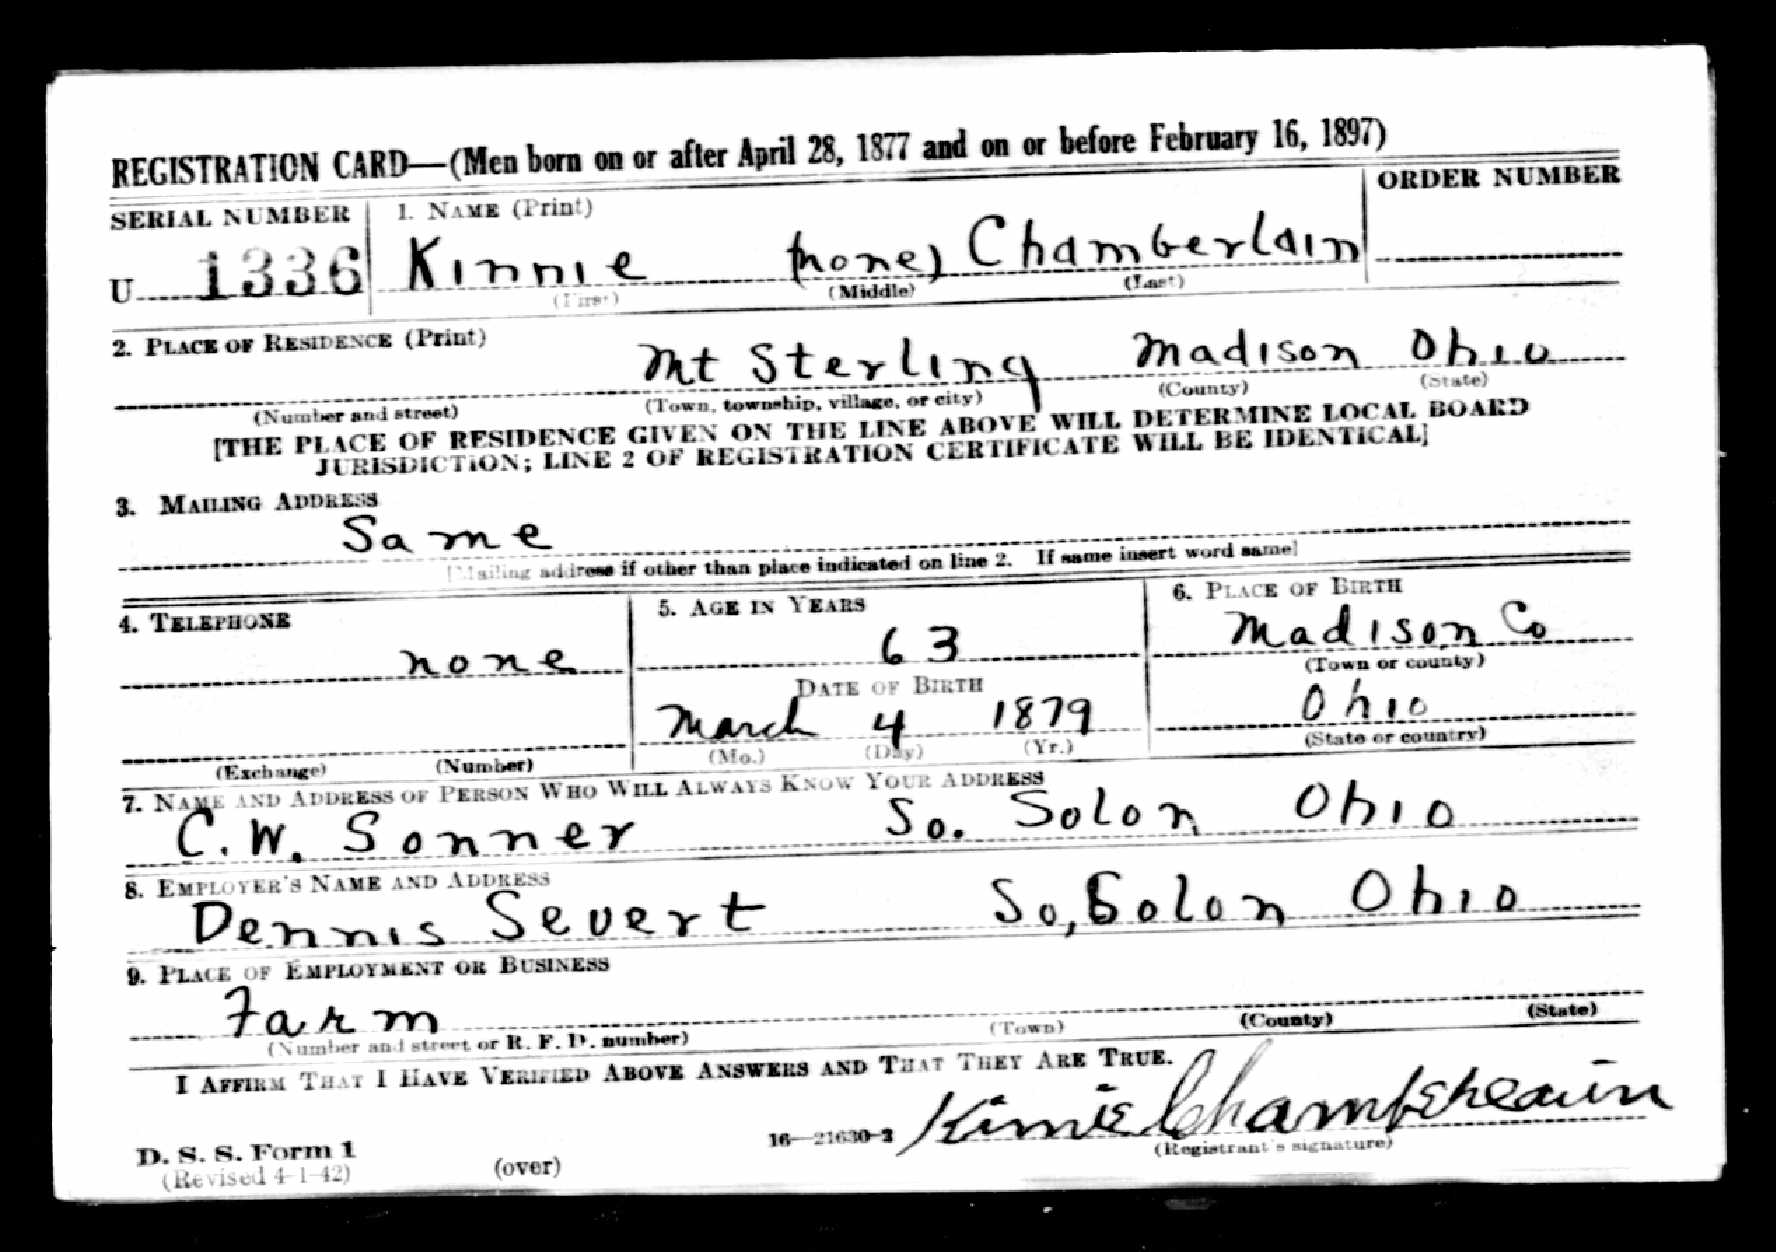 REGISTRATION CARD—(Men born on or after April 28, 1877 and on or before February 16, 1897)
SERIAL NUMBER 1. NAME (Print) ORDER NUMBER
U 1336 Kinnie (none) Chamberlain
(First) (Middle) (Last)
2. PLACE OF RESIDENCE (Print)
Mt Sterling Madison Ohio
(Number and street) (Town, township, village, or city) (County) (State)
[THE PLACE OF RESIDENCE GIVEN ON THE LINE ABOVE WILL DETERMINE LOCAL BOARD
JURISDICTION; LINE 2 OF REGISTRATION CERTIFICATE WILL BE IDENTICAL]
3. MAILING ADDRESS
Same
[Mailing address if other than place indicated on line 2. If same insert word same]
4. TELEPHONE 5. AGE IN YEARS 6. PLACE OF BIRTH
none 63 Madison Co
(Town or county)
DATE OF BIRTH Ohio
March 4 1879
(Exchange) (Number) (Mo.) (Day) (Yr.) (State or country)
7. NAME AND ADDRESS OF PERSON WHO WILL ALWAYS KNOW YOUR ADDRESS
C. W. Sonner So. Solon Ohio
8. EMPLOYER'S NAME AND ADDRESS
Dennis Severt So, Solon Ohio
9. PLACE OF EMPLOYMENT OR BUSINESS
Farm
(Number and street or R. F. D. number) (Town) (County) (State)
I AFFIRM THAT I HAVE VERIFIED ABOVE ANSWERS AND THAT THEY ARE TRUE.
D. S. S. Form 1
(Revised 4-1-42) (over) 16—21630-2 (Registrant's signature)